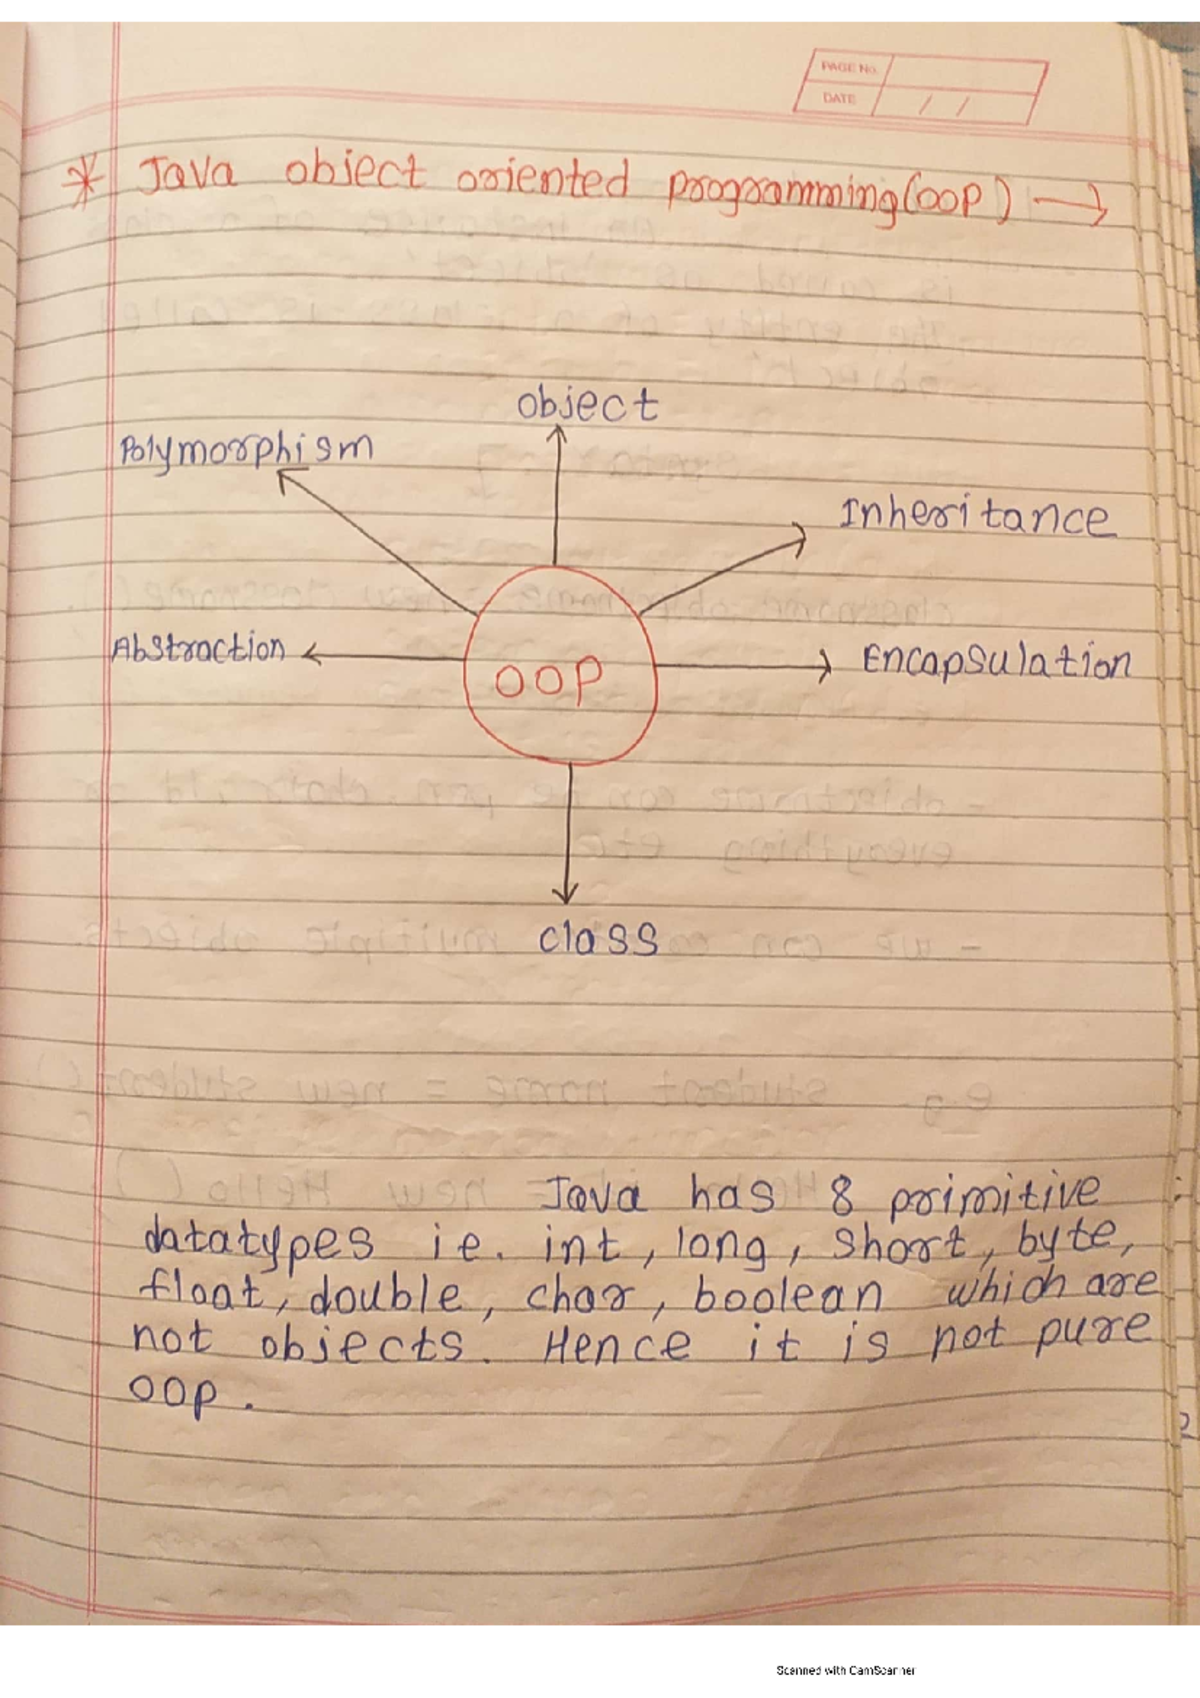 PAGE No.
DATE / /
* Java object oriented programming(OOP) →
object
Polymorphism
Inheritance
Abstraction
OOP
Encapsulation
class
Java has 8 primitive
datatypes ie. int, long, short, byte,
float, double, char, boolean which are
not objects. Hence it is not pure
OOP.
Scanned with CamScanner